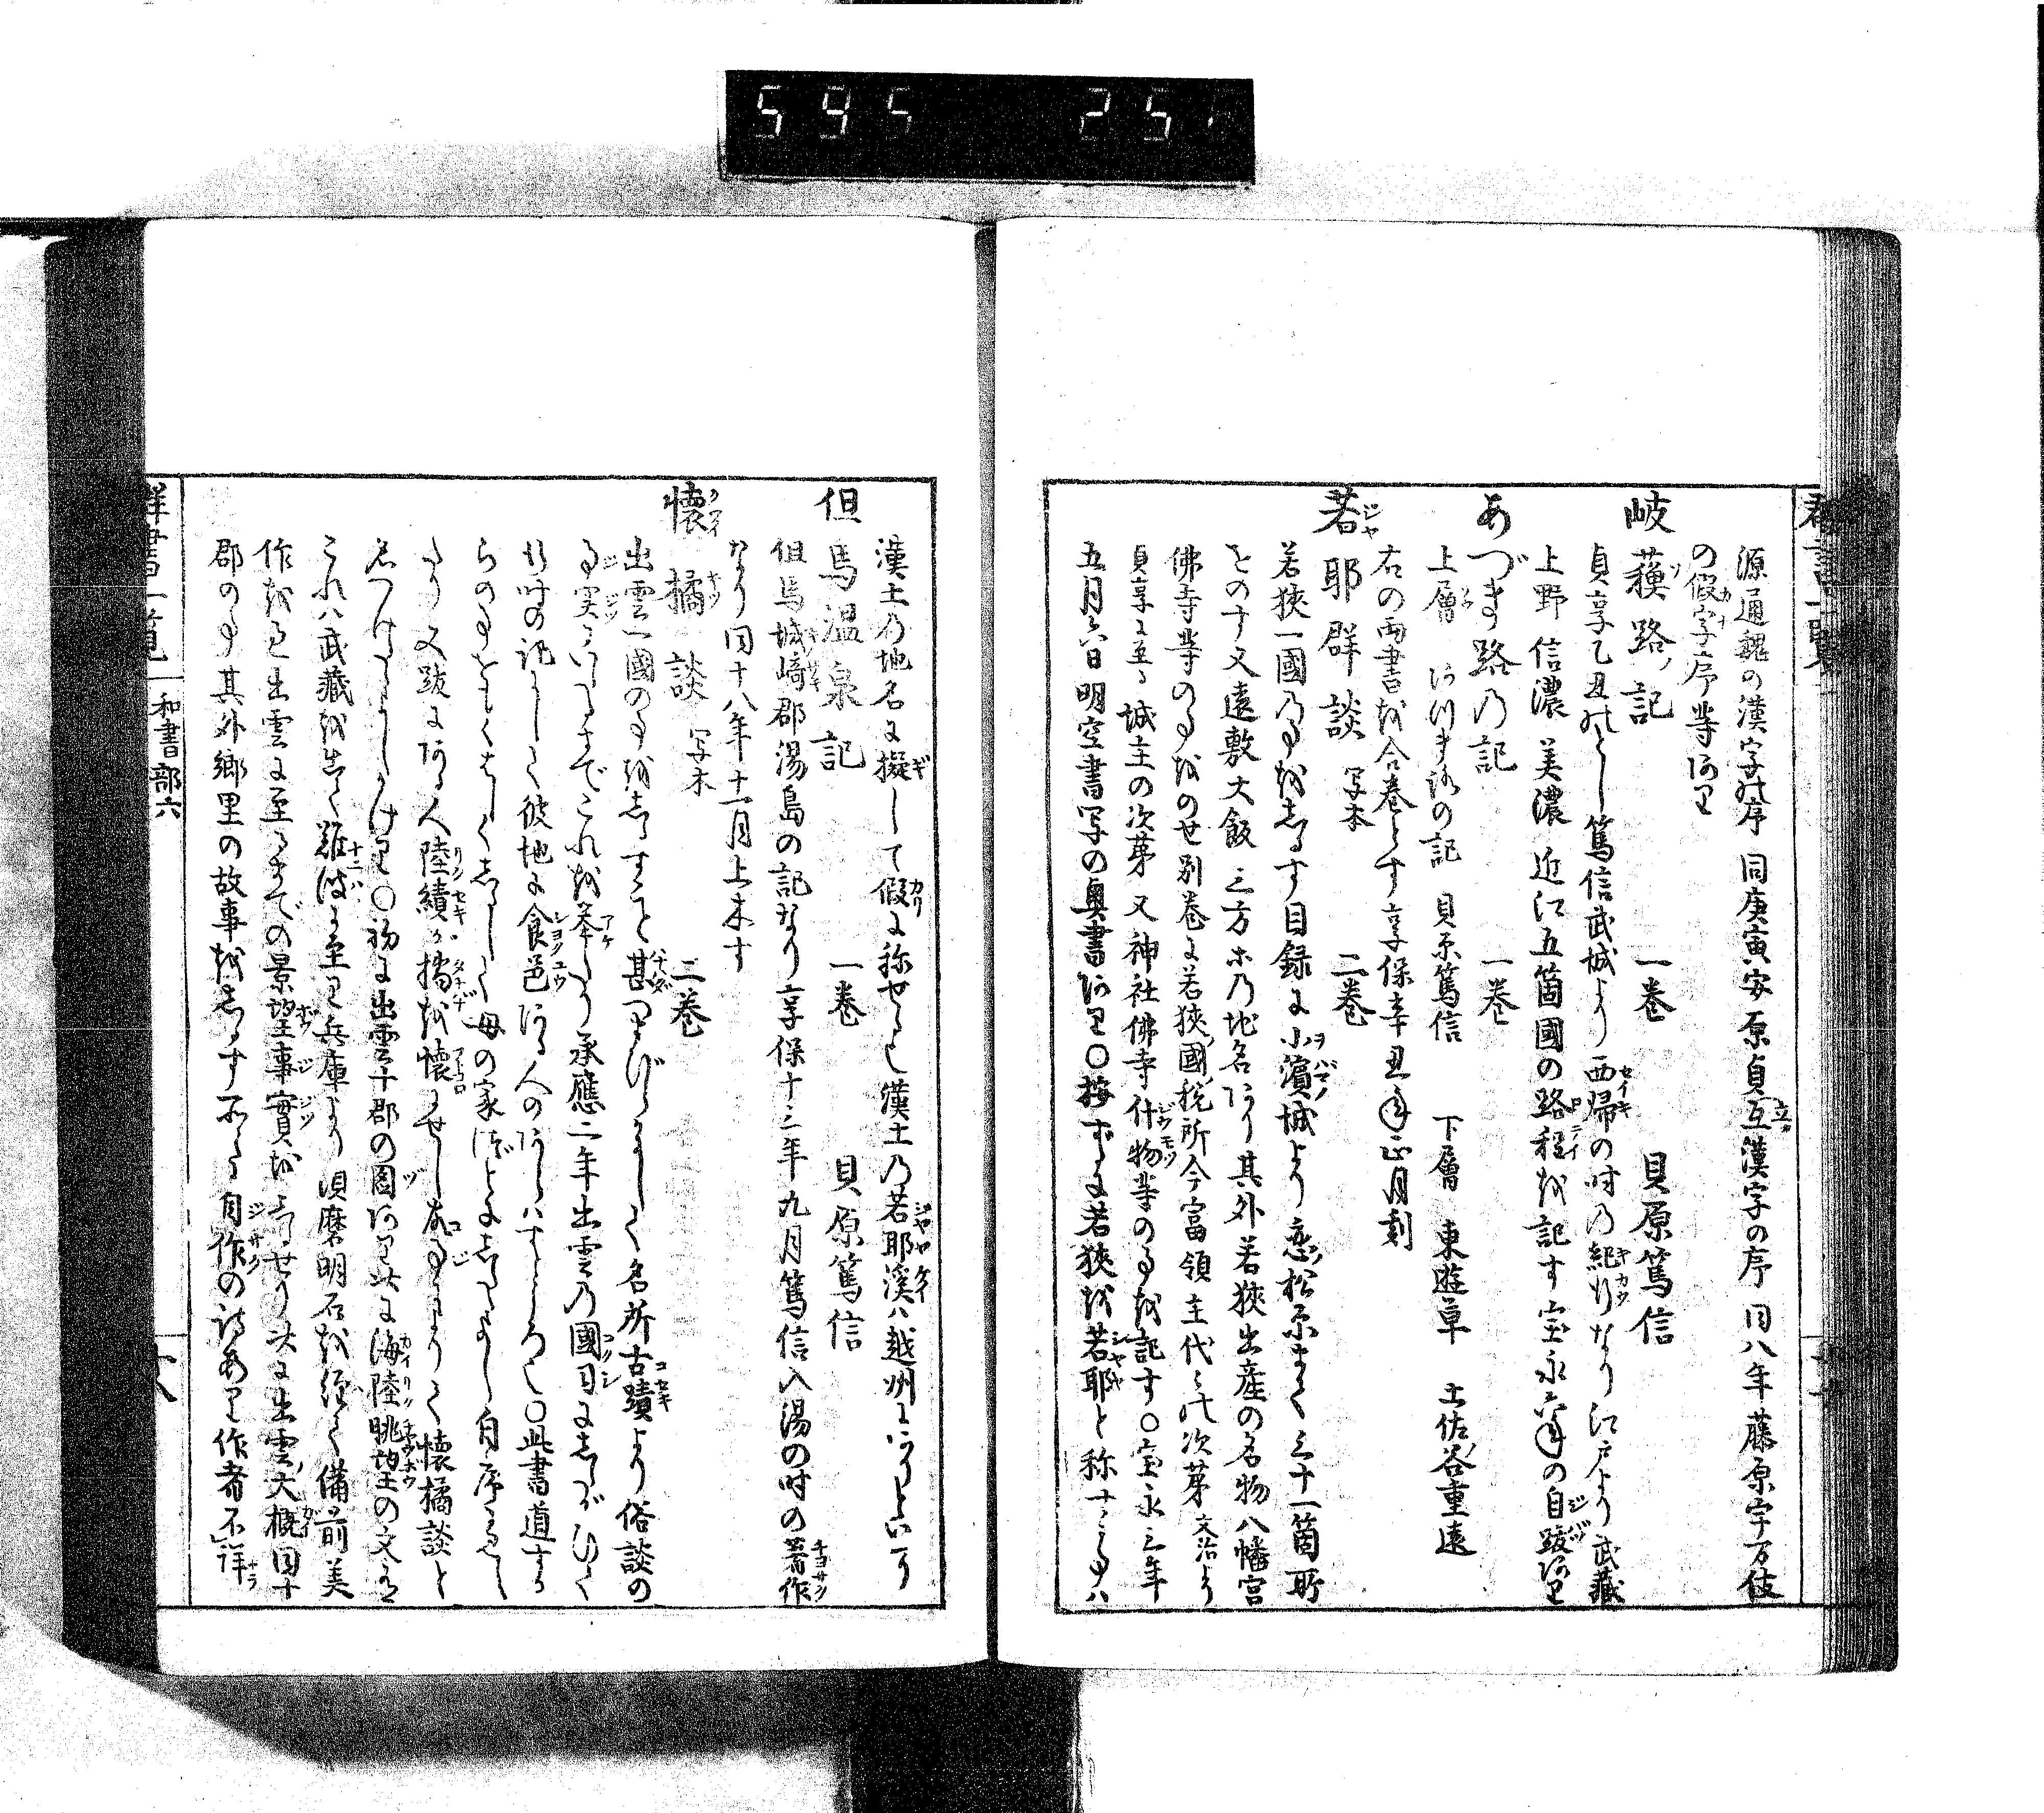 595 251
群書一覧
源通魏の漢字の序 同庚寅安原貞互漢字の序 同八年藤原宇万伎
の假字序等あり
岐蘓路ノ記 一巻 貝原篤信
貞享乙丑のとし篤信武城より西帰の時の紀行なり江戸より武藏
上野 信濃 美濃 近江五箇國の路程を記す宝永六年の自跋あり
あづま路の記 一巻
上層 あづま路の記 貝原篤信 下層 東遊草 土佐谷重遠
右の両書を合巻とす享保辛丑年正月刻
若耶群談 写本 二巻
若狹一國の事をしるす目録に小濵城より恋ノ松原まて三十一箇所
をのす又遠敷大飯三方等の地名あり其外若狹出産の名物八幡宮
佛寺等の事をのせ別巻に若狹ノ國ノ税所今富領主代々の次第文治より
貞享に至る城主の次第又神社佛寺什物等の事を記す〇宝永三年
五月六日明空書写の奥書あり〇按ずるに若狹を若耶と称する事ハ
漢土の地名に擬して假に称せし也漢土の若耶溪ハ越州にありといへり
但馬温泉記 一巻 貝原篤信
但馬城崎郡湯島の記なり享保十三年九月篤信入湯の時の著作
なり同十八年十一月上木す
懷橘談 写本 二巻
出雲一國の事をしるすこと甚つまびらかにして名所古蹟より俗談の
事実にいたるまでこれを挙たり承應二年出雲の國司にしたがひて
行時の記にして彼地に食邑ある人のあらハすところ也〇此書道すが
らの事をもくはしくしるして母の家づとにしたるよし自序に見へ
たり又跋にある人陸績が橘を懷にせし故事によりて懷橘談と
名つけたるよしかけり〇初に出雲十郡の圖あり次に海陸眺望の文有
これハ武藏を出て難波に至り兵庫より須磨明石を經て備前美
作をこえ出雲に至るまでの景望事實をのせたり次に出雲ノ大概同十
郡の事其外郷里の故事をしるす所々自作の詩あり作者不詳
群書一覧 和書部六 十八